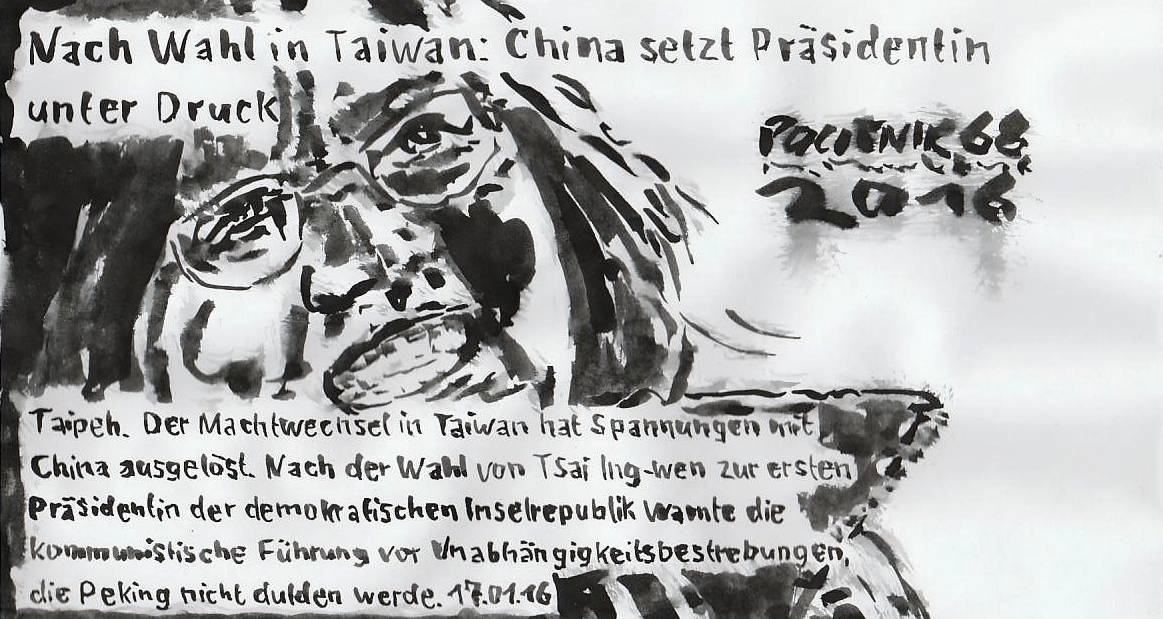 Nach Wahl in Taiwan: China setzt Präsidentin
unter Druck
POLITNIK 68
2016
Taipeh. Der Machtwechsel in Taiwan hat Spannungen mit
China ausgelöst. Nach der Wahl von Tsai Ing-wen zur ersten
Präsidentin der demokratischen Inselrepublik warnte die
kommunistische Führung vor Unabhängigkeitsbestrebungen,
die Peking nicht dulden werde. 17.01.16